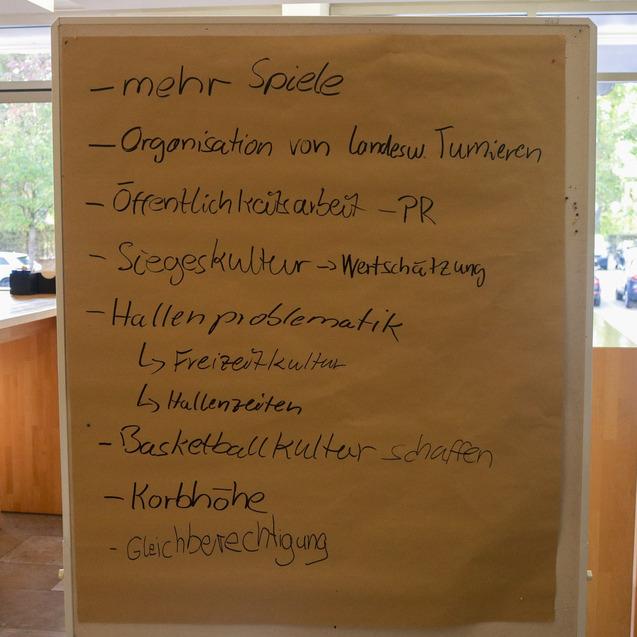 - mehr Spiele
- Organisation von landesw. Turnieren
- Öffentlichkeitsarbeit - PR
- Siegeskultur → Wertschätzung
- Hallenproblematik
↳ Freizeitkultur
↳ Hallenzeiten
- Basketballkultur schaffen
- Korbhöhe
- Gleichberechtigung